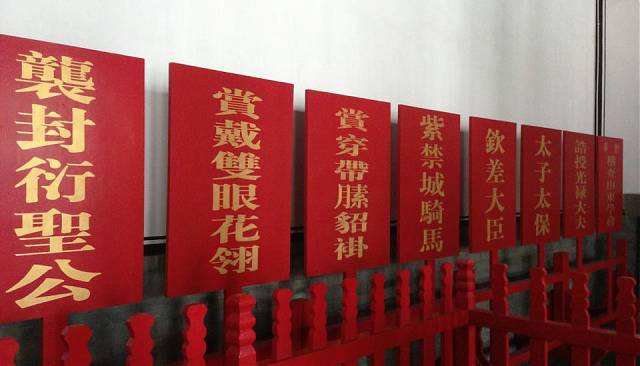 襲封衍聖公
賞戴雙眼花翎
賞穿帶膆貂褂
紫禁城騎馬
欽差大臣
太子太保
誥授光祿大夫
稽查山東學務